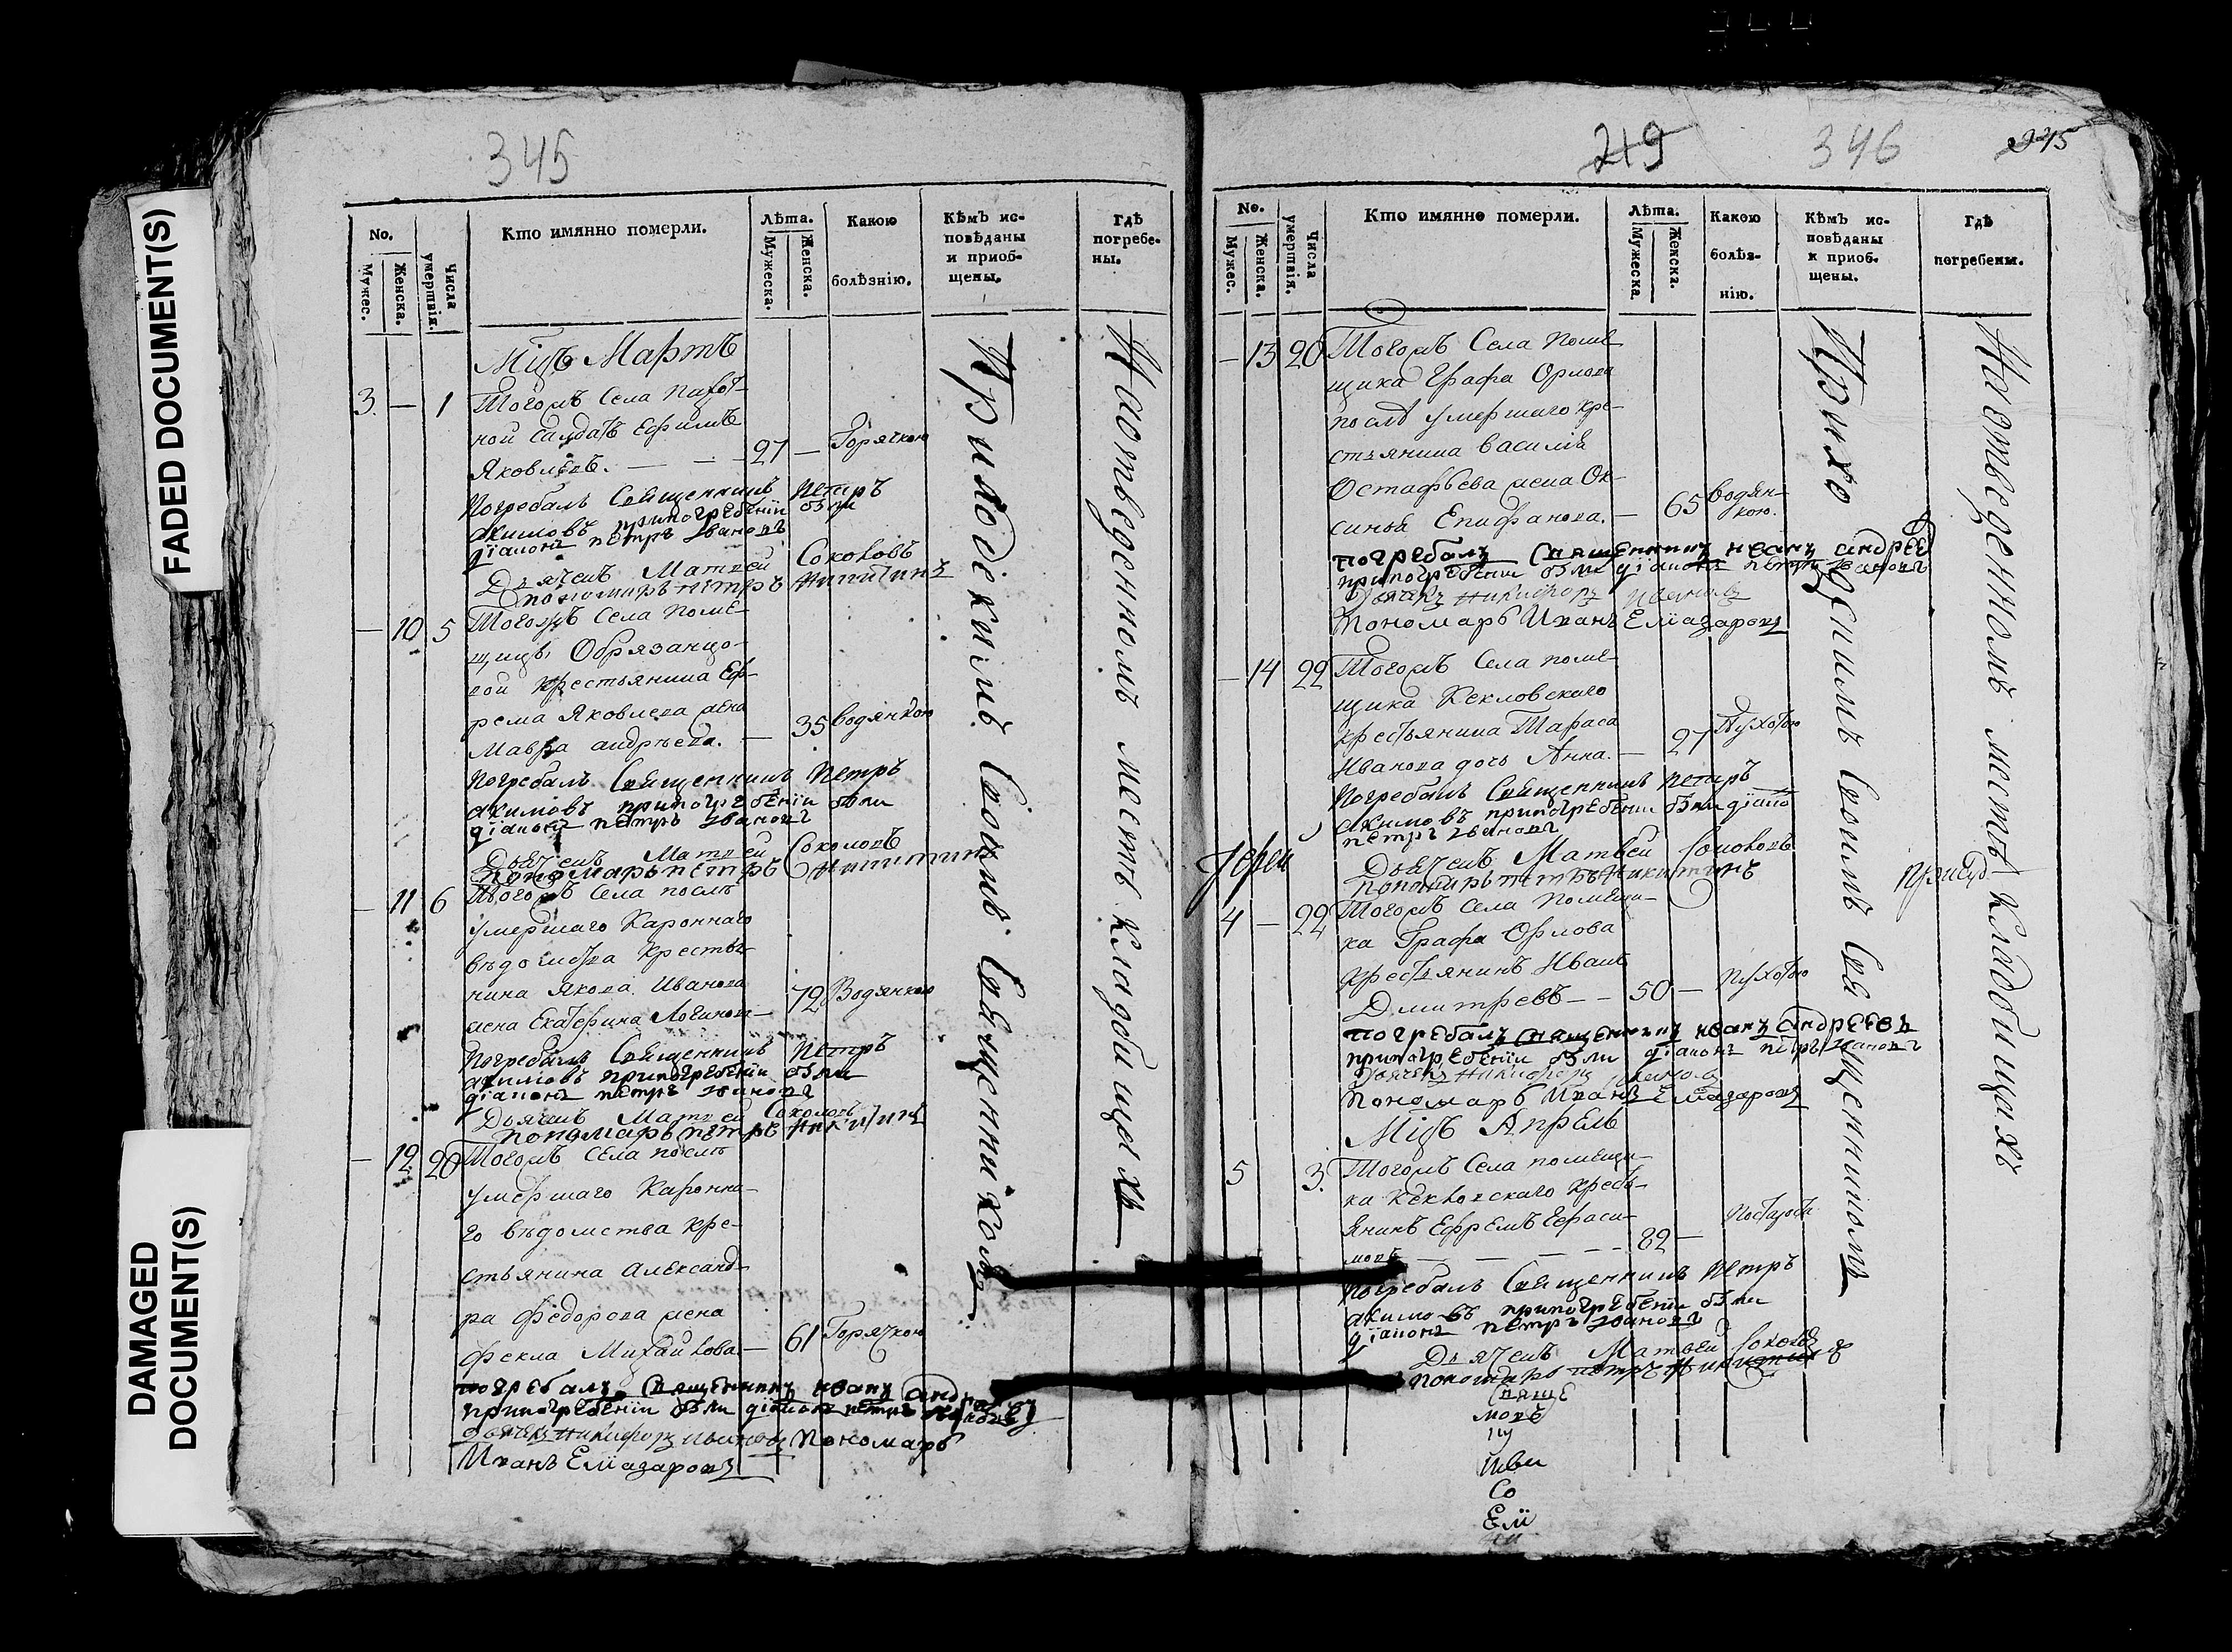 FADED DOCUMENT(S)
DAMAGED
DOCUMENT(S)
345
No.
Мужес.
Женска.
Числа
умертвія.
Кто имянно померли.
Лѣта.
Мужеска.
Женска.
Какою
болѣзнію.
Кѣмъ ис-
повѣданы
и приоб-
щены.
Гдѣ
погребе-
ны.
Мцъ Мартъ
3. — 1 Тогожъ Села Пѣхот-
ной Салдатъ Ефимъ
Яковлевъ. — 27 — Горячкою
Погребалъ Священникъ Петръ
Акимовъ припогребении были
діаконъ петръ Ивановъ
Дьячекъ Матвей Соколовъ
пономарь петръ Никитинъ
— 10 5 Тогожъ Села Поме-
щицы Обрязанцо-
вой крестьянина Еф-
рема Яковлева жена
Мавра андреева. — 35 водянкою
Погребалъ Священникъ Петръ
акимовъ припогребении были
діаконъ петръ Ивановъ
Дьячекъ Матвей Соколовъ
пономарь петръ Никитинъ
— 11 6 Тогожъ Села послѣ
умершаго Кароннаго
вѣдомства крестья-
нина Якова Иванова
жена Екатерина Логинова — 72 Водянкою
Погребалъ Священникъ Петръ
акимовъ припогребении были
діаконъ петръ Ивановъ
Дьячекъ Матвей Соколовъ
пономарь петръ Никитинъ
— 12 20 Тогожъ Села послѣ
умершаго Каронна-
го вѣдомства кре-
стьянина Александ-
ра Федорова жена
Фекла Михайлова — 61 Горячкою
погребалъ Священникъ иванъ андреевъ
припогребении были діаконъ петръ Ивановъ
дьячекъ никифоръ ивановъ Пономарь
Иванъ Елиазаровъ
Приходскимъ Своимъ Священникомъ
Наотведенномъ местѣ кладбищахъ
219
346
No.
Мужес.
Женска.
Числа
умертвія.
Кто имянно померли.
Лѣта.
Мужеска.
Женска.
Какою
болѣз-
нію.
Кѣмъ ис-
повѣданы
и приоб-
щены.
Гдѣ
погребены.
— 13 20 Тогожъ Села Поме-
щика Графа Орлова
послѣ умершаго кре-
стьянина василія
Остафьева жена Ок-
синья Епифанова. — 65 водян-
кою.
погребалъ Священникъ иванъ андреевъ
припогребении были діаконъ петръ Ивановъ
Дьячекъ никифоръ ивановъ
Пономарь Иванъ Елиазаровъ
— 14 22 Тогожъ Села поме-
щика Кекловскаго
крестьянина Тараса
Иванова дочь Анна. — 27
Погребалъ Священникъ петръ
акимовъ припогребении были діако
петръ Ивановъ
Дьячекъ Матвей Соколовъ
пономарь петръ Никитинъ
Іереи
4 — 22 Тогожъ Села Помещи-
ка Графа Орлова
крестьянинъ Иванъ
Дмитревъ — 50 —
погребалъ священникъ иванъ андреевъ
припогребении были діаконъ петръ Ивановъ
Дьячекъ никифоръ ивановъ
Пономарь Иванъ Елиазаровъ
Мцъ Апрель
5 3. Тогожъ Села помещи-
ка Кекловскаго кресть-
янинъ Ефремъ Гераси-
мовъ — 82 —
Погребалъ Священникъ петръ
акимовъ припогребении были
діаконъ петръ Ивановъ
Дьячекъ Матвей Соколовъ
пономарь петръ Никитинъ
Свяще
мовъ
Иван
Со
Ели
Прихо дскимъ Своимъ Священникомъ
Наотведенномъ местѣ кладбищахъ